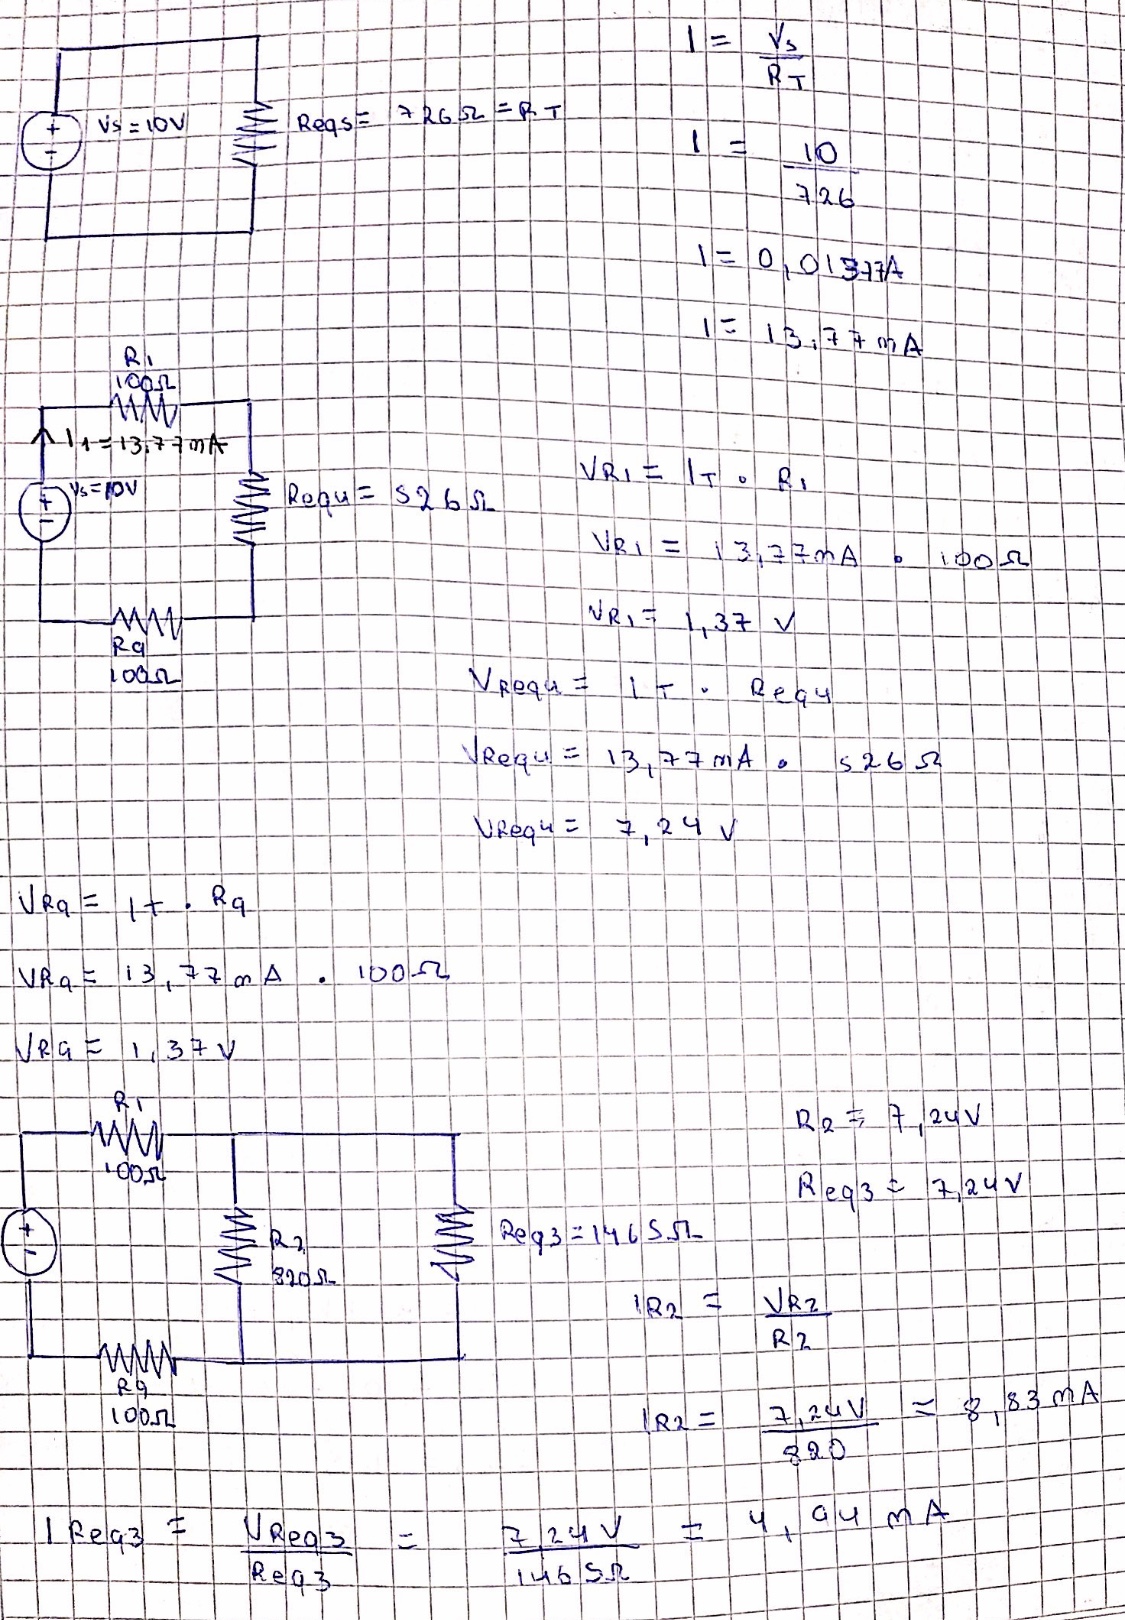 I = Vs / RT
Vs = 10V
Req5 = 726Ω = RT
I = 10 / 726
I = 0,01377A
I = 13,77mA
R1
100Ω
I1 = 13,77mA
Vs = 10V
Req4 = 526Ω
R9
100Ω
VR1 = IT . R1
VR1 = 13,77mA . 100Ω
VR1 = 1,37 V
VReq4 = IT . Req4
VReq4 = 13,77mA . 526Ω
VReq4 = 7,24 V
VR9 = IT . R9
VR9 = 13,77mA . 100Ω
VR9 = 1,37V
R1
100Ω
R2
820Ω
Req3 = 1465Ω
R9
100Ω
R2 = 7,24V
Req3 = 7,24V
IR2 = VR2 / R2
IR2 = 7,24V / 820 = 8,83mA
IReq3 = VReq3 / Req3 = 7,24V / 1465Ω = 4,94mA